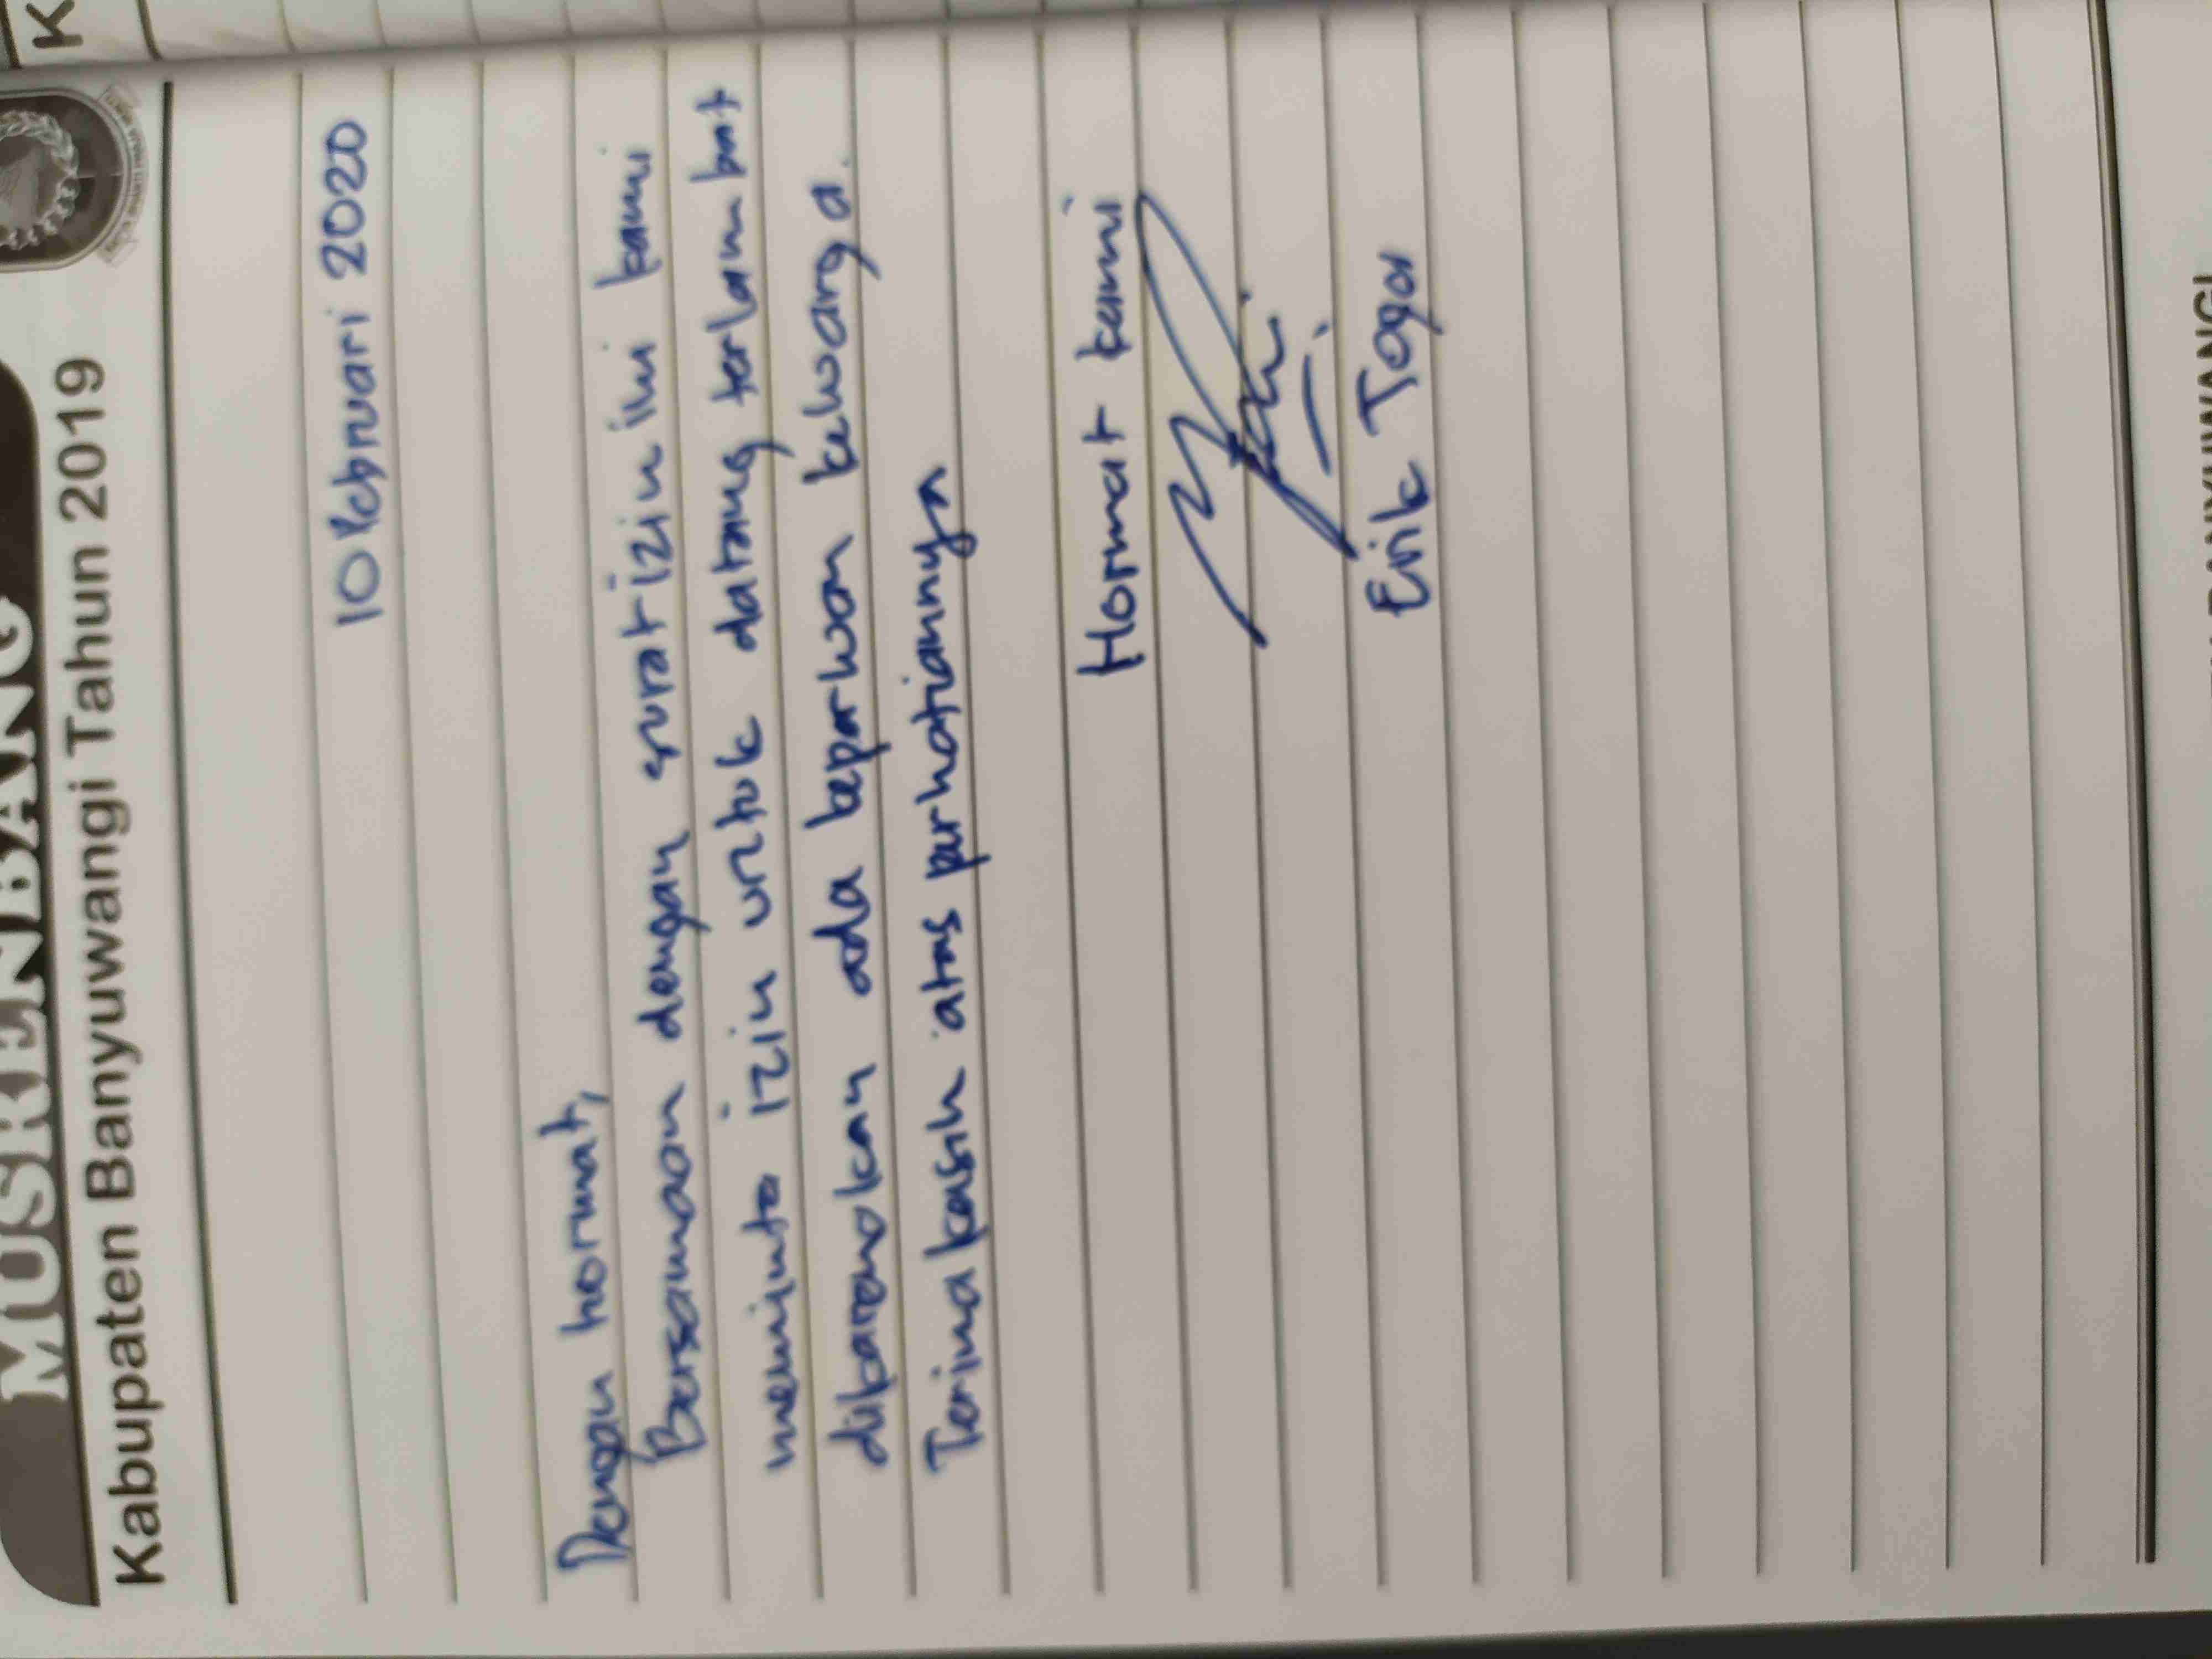 MUSRENBANG
Kabupaten Banyuwangi Tahun 2019
K
10 Februari 2020
Dengan hormat,
Bersamaan dengan surat izin ini kami
meminta izin untuk datang terlambat
dikarenakan ada keperluan keluarga.
Terima kasih atas perhatiannya
Hormat kami
Erik Togar
BANYUWANGI